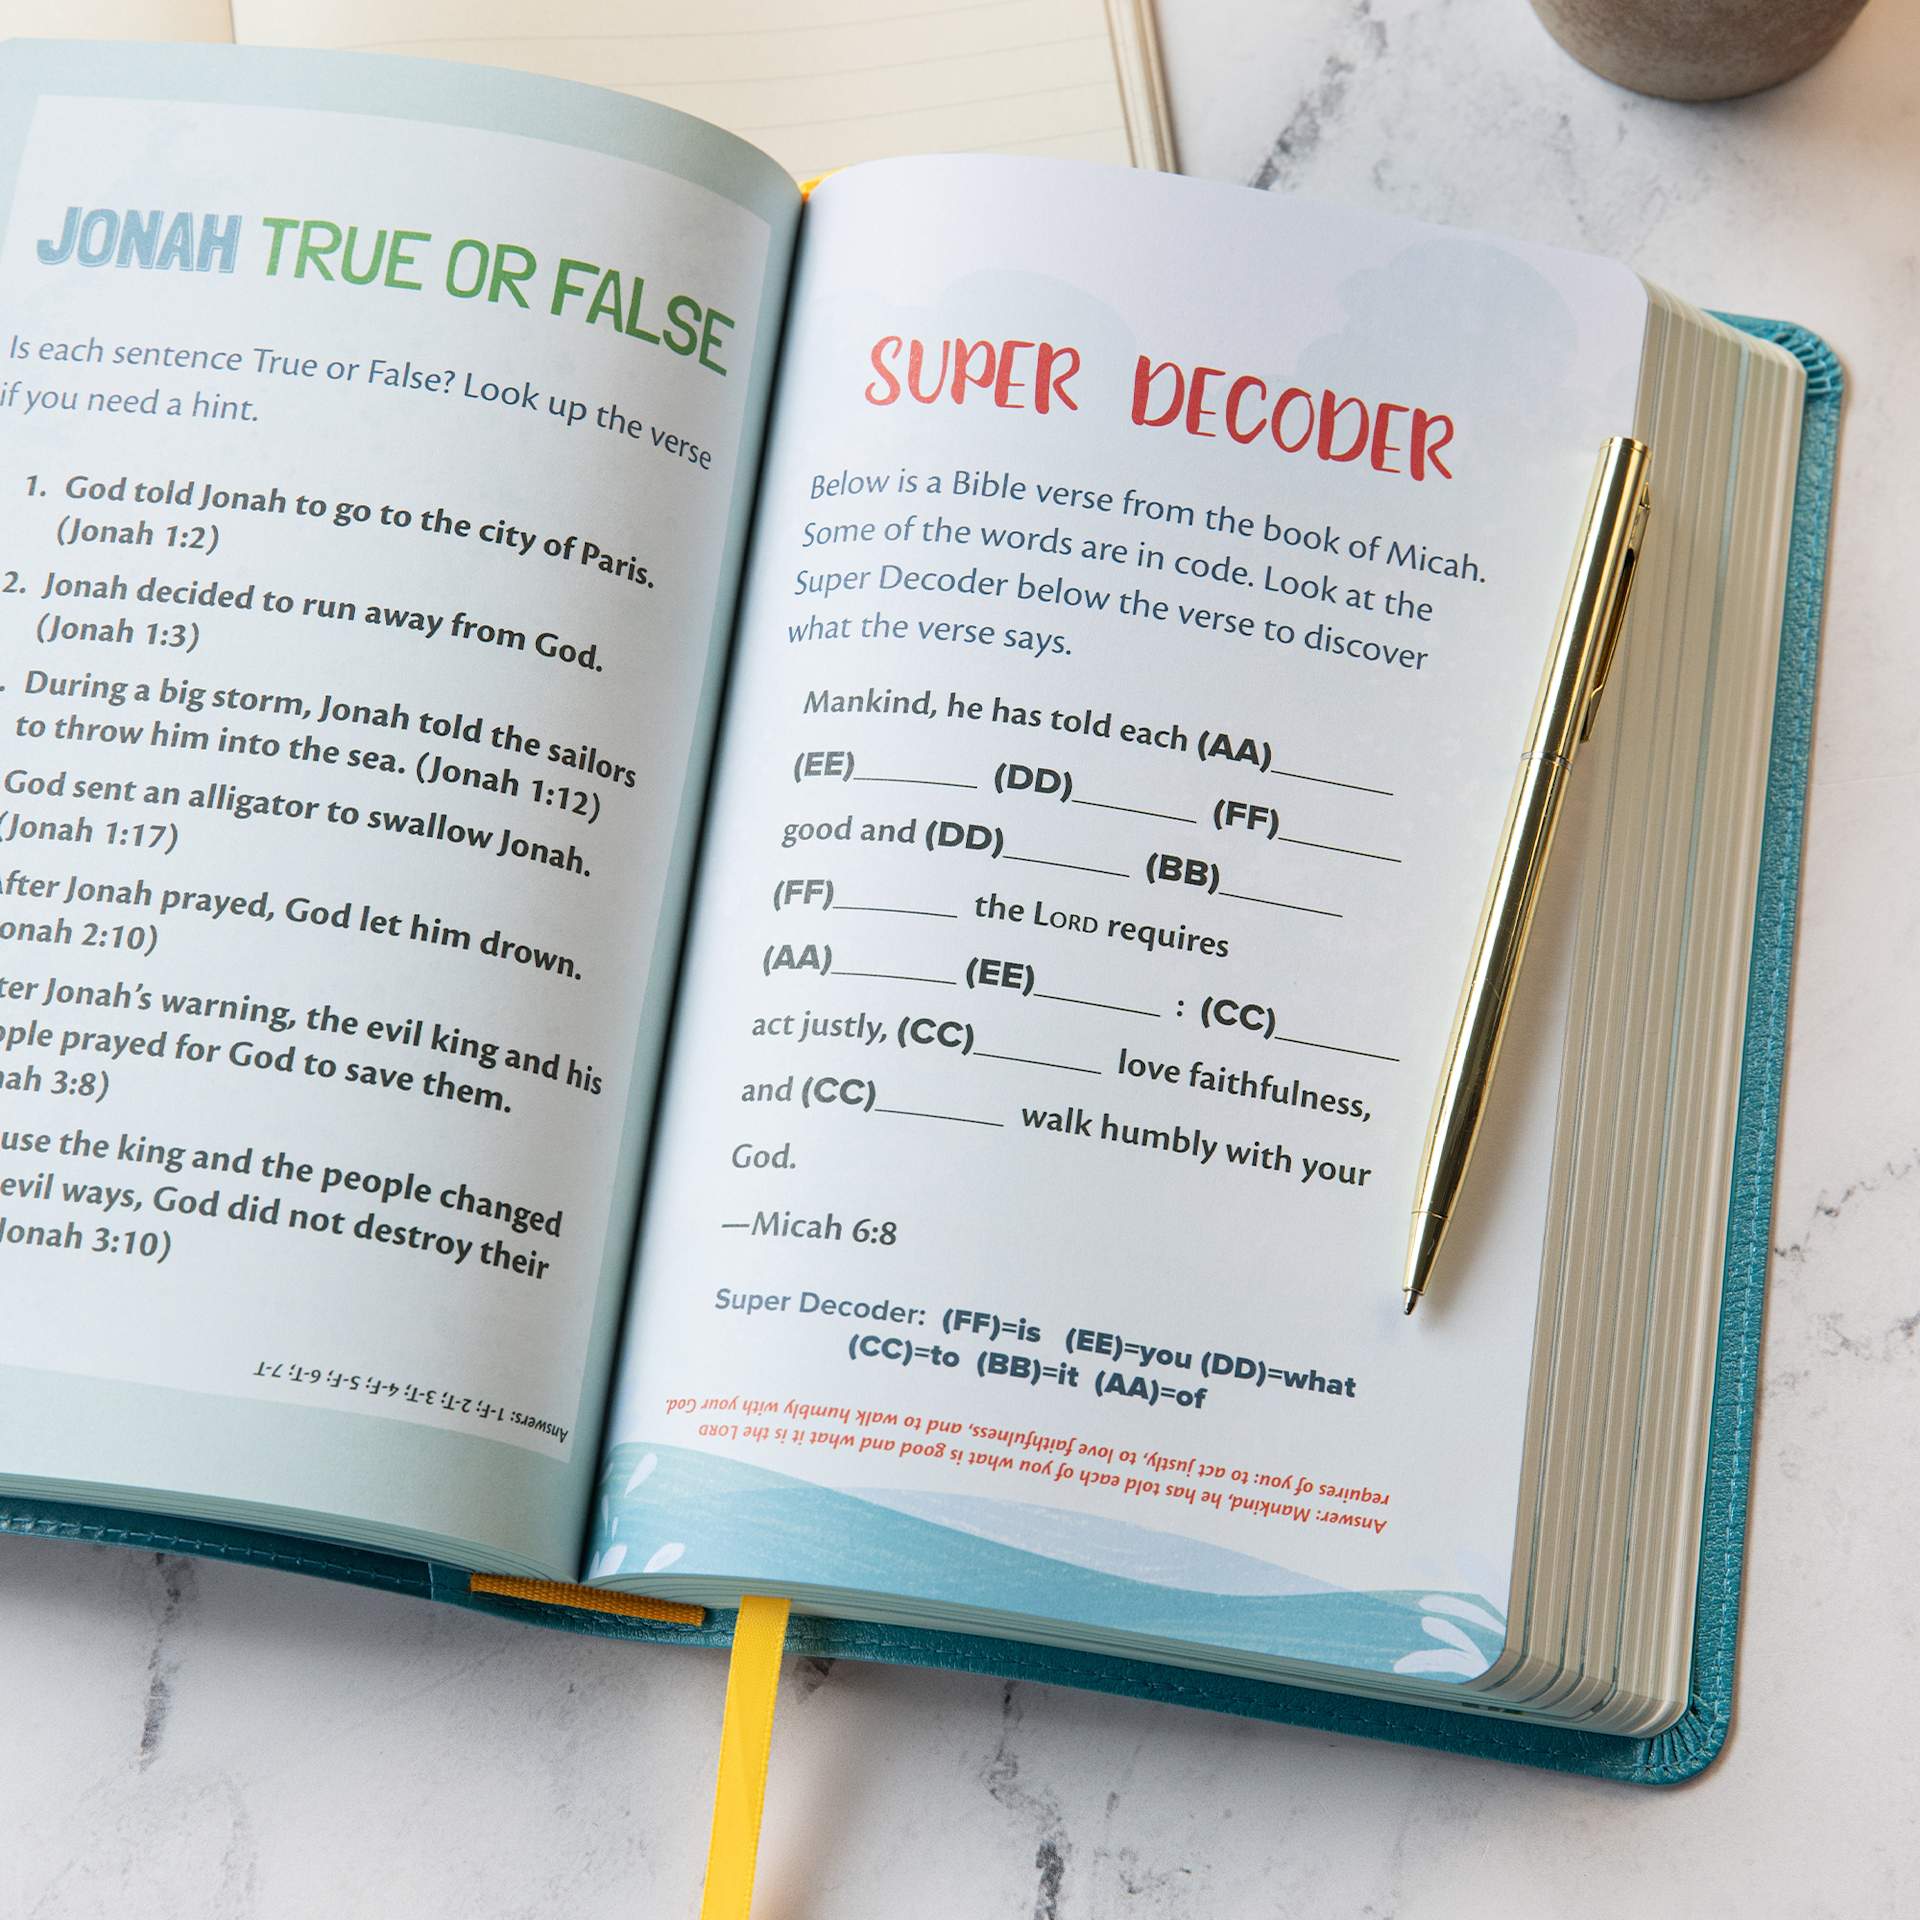 JONAH TRUE OR FALSE
Is each sentence True or False? Look up the verse
if you need a hint.
1. God told Jonah to go to the city of Paris.
(Jonah 1:2)
2. Jonah decided to run away from God.
(Jonah 1:3)
. During a big storm, Jonah told the sailors
to throw him into the sea. (Jonah 1:12)
God sent an alligator to swallow Jonah.
(Jonah 1:17)
fter Jonah prayed, God let him drown.
onah 2:10)
ter Jonah's warning, the evil king and his
ople prayed for God to save them.
nah 3:8)
use the king and the people changed
evil ways, God did not destroy their
Jonah 3:10)
Answers: 1-F; 2-T; 3-T; 4-F; 5-F; 6-T; 7-T
SUPER DECODER
Below is a Bible verse from the book of Micah.
Some of the words are in code. Look at the
Super Decoder below the verse to discover
what the verse says.
Mankind, he has told each (AA)______
(EE)______ (DD)______ (FF)______
good and (DD)______ (BB)______
(FF)______ the LORD requires
(AA)______ (EE)______ : (CC)______
act justly, (CC)______ love faithfulness,
and (CC)______ walk humbly with your
God.
—Micah 6:8
Super Decoder: (FF)=is (EE)=you (DD)=what
(CC)=to (BB)=it (AA)=of
Answer: Mankind, he has told each of you what is good and what it is the LORD
requires of you: to act justly, to love faithfulness, and to walk humbly with your God.